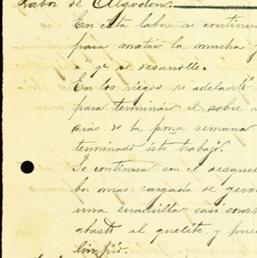 Labor de Algodon.
En esta labor se continua
para matar la mucha y
a que se desarrolle.
En los riegos se adelantó
para terminar el sobre
dias de la pma semana
terminado éste trabajo.
Se continua con el desague
bor mas cargada de
una cuadrilla casi cons
abasti al quelite, y pue
limpio.